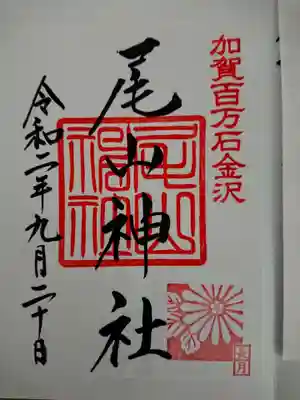 加賀百万石金沢
尾山神社
尾山神社
令和二年九月二十日
長月